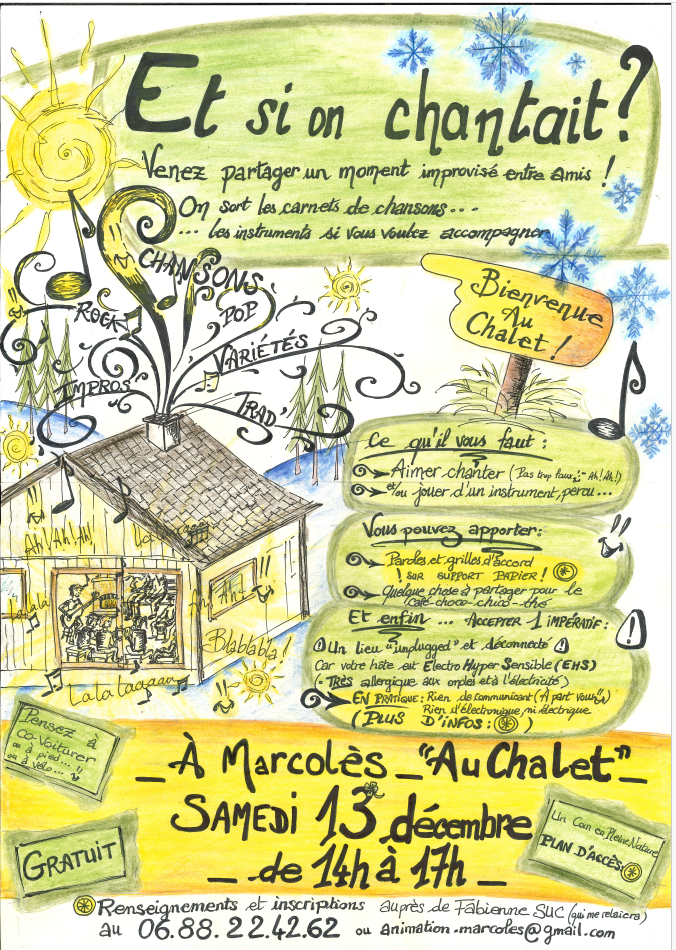 Et si on chantait ?
Venez partager un moment improvisé entre amis !
On sort les carnets de chansons...
... les instruments si vous voulez accompagner
CHANSONS
ROCK
POP
VARIÉTÉS
IMPROS
TRAD'
Bienvenue
Au
Chalet !
Ce qu'il vous faut :
Aimer chanter (Pas trop faux Ah! Ah!)
et/ou jouer d'un instrument, percu...
Vous pouvez apporter:
Paroles et grilles d'accord
! SUR SUPPORT PAPIER !
Quelque chose à partager pour le
café-choco-chico-thé
Et enfin ... ACCEPTER 1 IMPÉRATIF :
Un lieu "unplugged" et déconnecté
Car votre hôte est Electro Hyper Sensible (EHS)
(= TRÈS allergique aux ondes et à l'électricité)
EN PRATIQUE : Rien de communicant (À part vous)
Rien d'électronique, ni électrique
(PLUS D'INFOS : )
Ah! Ah! Ah!
Lalala
Ah! Ah!
Blablabla !
Lalalaaaaa
Pensez à
co-voiturer
ou à pied...
ou à vélo...
GRATUIT
_ À Marcolès _ "Au Chalet" _
SAMEDI 13 décembre
_ de 14h à 17h _
Un Coin en Pleine Nature
PLAN D'ACCÈS:
Renseignements et inscriptions auprès de Fabienne SUC (qui me relaiera)
au 06.88.22.42.62 ou animation.marcoles@gmail.com